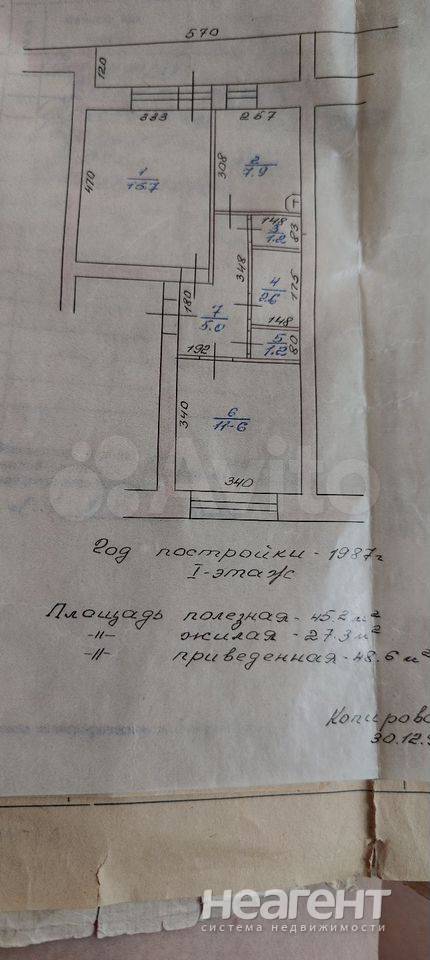 570
120
333
267
470
1
15.7
308
2
7.9
148
3
1.2
83
348
4
2.6
175
180
7
5.0
148
5
1.2
80
192
340
6
11.6
340
Avito
Год постройки - 1987г
I-этаж
Площадь полезная - 45.2 м²
-"- жилая - 27.3 м²
-"- приведенная - 48.6 м²
Копирова
30.12.9
неагент
система недвижимости